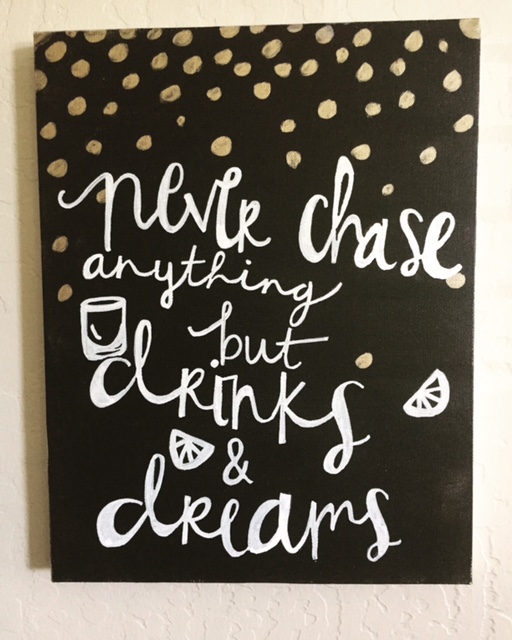 never chase
anything
but
drinks
&
dreams